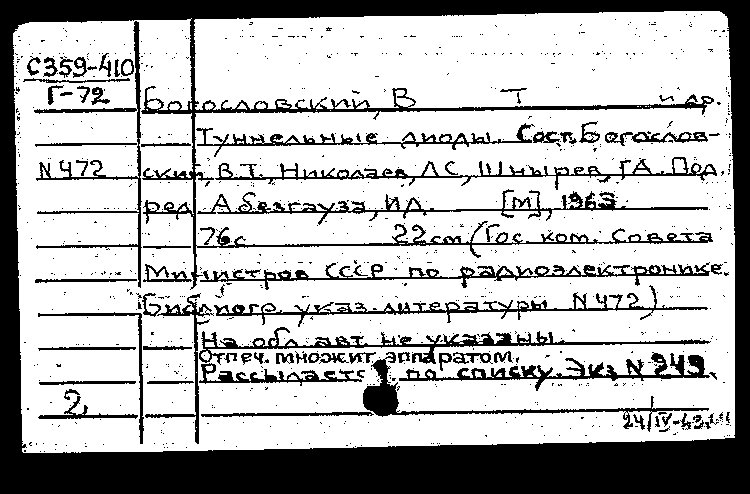 С359-410
Г-72
Богословский, В Т и др.
Туннельные диоды. Сост. Богослов-
N 472 ский, В.Т., Николаев, Л С, Шнырев, Г А. Под.
ред Абезгауза, И.Д. [М], 1963.
76 с 22 см (Гос. ком. Совета
Министров СССР по радиоэлектронике.
Библиогр. указ. литературы N 472).
На обл. авт. не указаны.
Отпеч. множит аппаратом.
Рассылаетс по списку. Экз N 249.
2
24/IV-63